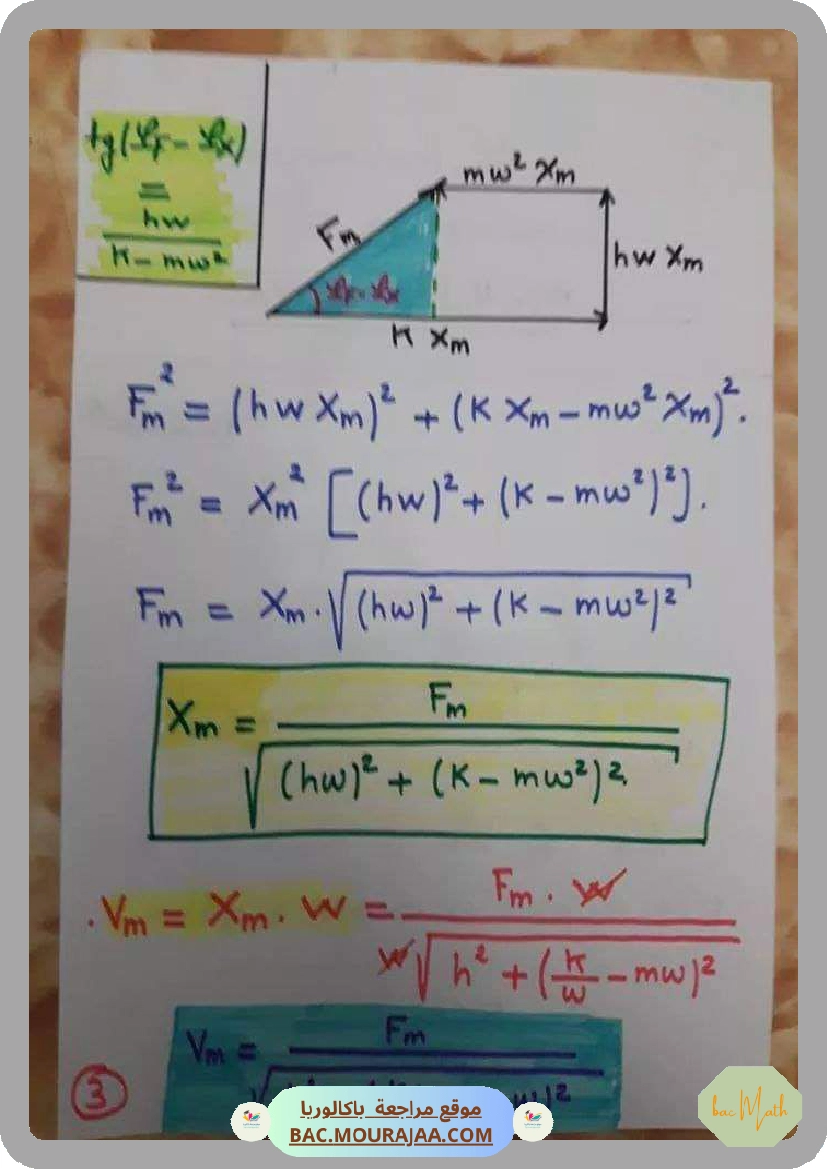 tg(φF - φx)
=
hw
K - mw²
mw² Xm
Fm
hw Xm
φF - φx
K Xm
Fm² = (hw Xm)² + (K Xm - mw² Xm)².
Fm² = Xm² [(hw)² + (K - mw²)²].
Fm = Xm . √(hw)² + (K - mw²)²
Xm = Fm
√(hw)² + (K - mw²)²
. Vm = Xm . w = Fm . w
w √h² + (K/w - mw)²
Vm = Fm
3
موقع مراجعة باكالوريا
BAC.MOURAJAA.COM
bac Math